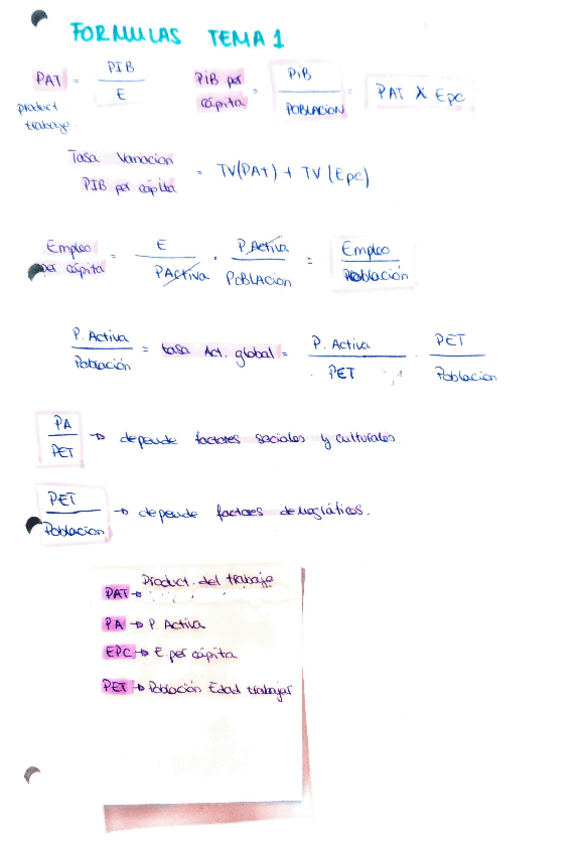 FORMULAS TEMA 1
PAT = PIB / E
product trabajo.
PiB per cápita = PiB / POBLACION = PAT X Epc
Tasa Variacion PIB per cápita = TV(PAT) + TV (Epc)
Empleo per cápita = E / PActiva · P.Activa / POBLACION = Empleo / Población
P. Activa / Población = tasa Act. global = P. Activa / PET · PET / Poblacion
PA / PET → depende factores sociales y culturales
PET / Poblacion → depende factores demográficos.
PAT → Product. del trabajo
PA → P. Activa
EPC → E. per cápita
PET → Población Edad trabajar